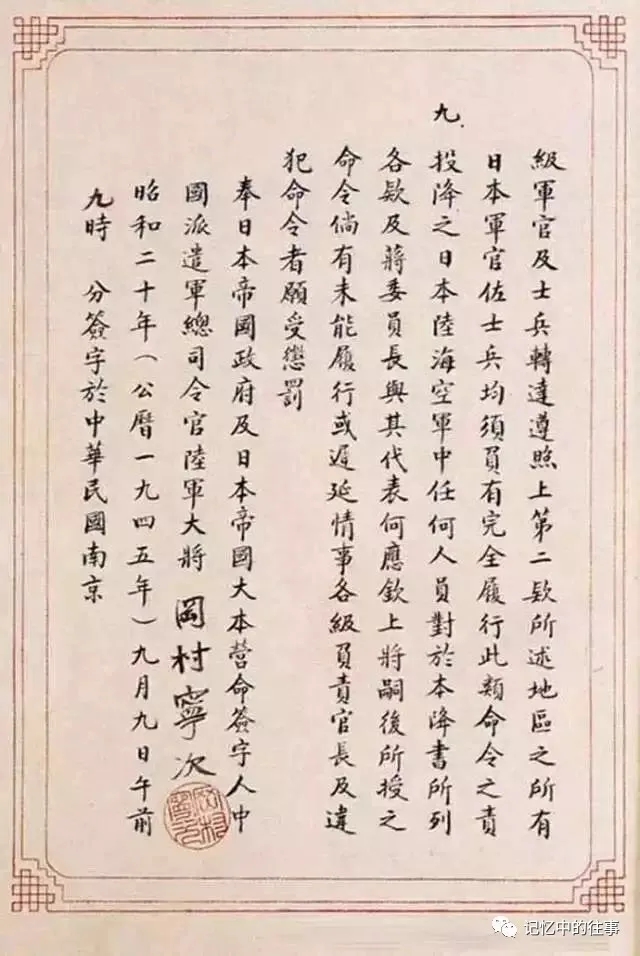 級軍官及士兵轉達遵照上第二欵所述地區之所有
日本軍官佐士兵均須員有完全履行此類命令之責
九.投降之日本陸海空軍中任何人員對於本降書所列
各欵及蔣委員長與其代表何應欽上將嗣後所授之
命令倘有未能履行或遲延情事各級員責官長及違
犯命令者願受懲罰
奉日本帝國政府及日本帝國大本營命簽字人中
國派遣軍總司令官陸軍大將 岡村寧次
昭和二十年(公曆一九四五年)九月九日午前
九時 分簽字於中華民國南京
记忆中的往事